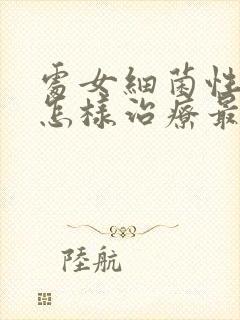 處女細菌性
怎樣治療最
陸航